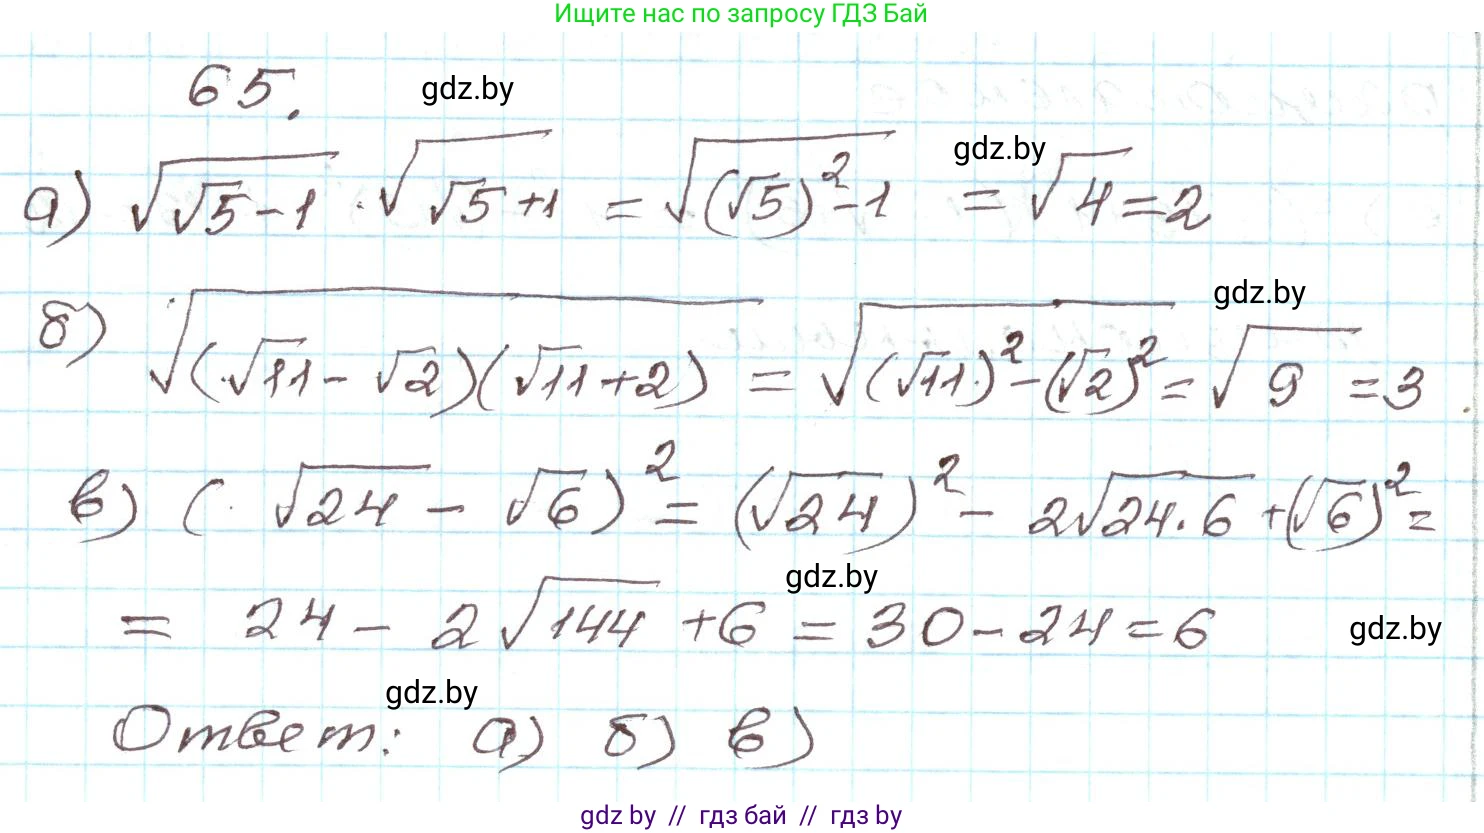 Ищите нас по запросу ГДЗ Бай
65.
gdz.by
а) √(√5-1) · √(√5+1) = √((√5)²-1) = √4 = 2
gdz.by
gdz.by
б) √((√11-√2)(√11+2)) = √((√11)²-(√2)²) = √9 = 3
в) (√24 - √6)² = (√24)² - 2√24·6 + (√6)² =
gdz.by
= 24 - 2√144 + 6 = 30 - 24 = 6
gdz.by
gdz.by
Ответ: а) б) в)
gdz.by // гдз бай // гдз by